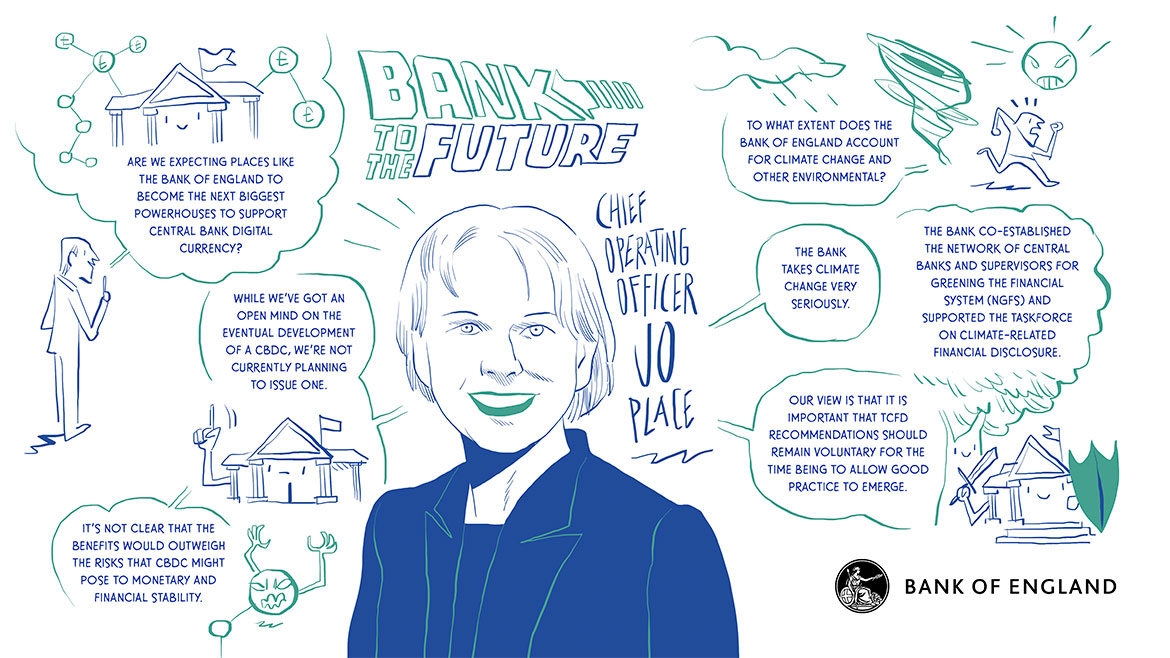 BANK
TO THE FUTURE
CHIEF
OPERATING
OFFICER
JO
PLACE
£
£
£
£
£
ARE WE EXPECTING PLACES LIKE
THE BANK OF ENGLAND TO
BECOME THE NEXT BIGGEST
POWERHOUSES TO SUPPORT
CENTRAL BANK DIGITAL
CURRENCY?
WHILE WE'VE GOT AN
OPEN MIND ON THE
EVENTUAL DEVELOPMENT
OF A CBDC, WE'RE NOT
CURRENTLY PLANNING
TO ISSUE ONE.
IT'S NOT CLEAR THAT THE
BENEFITS WOULD OUTWEIGH
THE RISKS THAT CBDC MIGHT
POSE TO MONETARY AND
FINANCIAL STABILITY.
TO WHAT EXTENT DOES THE
BANK OF ENGLAND ACCOUNT
FOR CLIMATE CHANGE AND
OTHER ENVIRONMENTAL?
THE BANK
TAKES CLIMATE
CHANGE VERY
SERIOUSLY.
THE BANK CO-ESTABLISHED
THE NETWORK OF CENTRAL
BANKS AND SUPERVISORS FOR
GREENING THE FINANCIAL
SYSTEM (NGFS) AND
SUPPORTED THE TASKFORCE
ON CLIMATE-RELATED
FINANCIAL DISCLOSURE.
OUR VIEW IS THAT IT IS
IMPORTANT THAT TCFD
RECOMMENDATIONS SHOULD
REMAIN VOLUNTARY FOR THE
TIME BEING TO ALLOW GOOD
PRACTICE TO EMERGE.
BANK OF ENGLAND